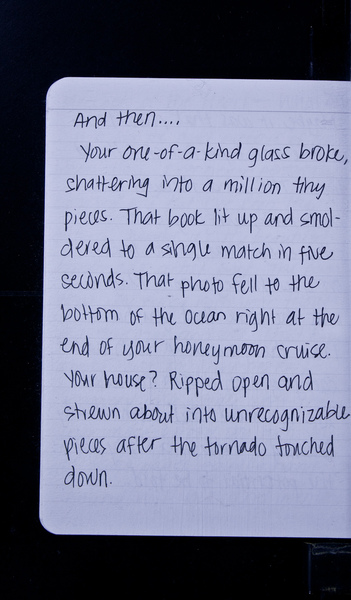 And then....
Your one-of-a-kind glass broke,
shattering into a million tiny
pieces. That book lit up and smol-
dered to a single match in five
seconds. That photo fell to the
bottom of the ocean right at the
end of your honeymoon cruise.
Your house? Ripped open and
strewn about into unrecognizable
pieces after the tornado touched
down.